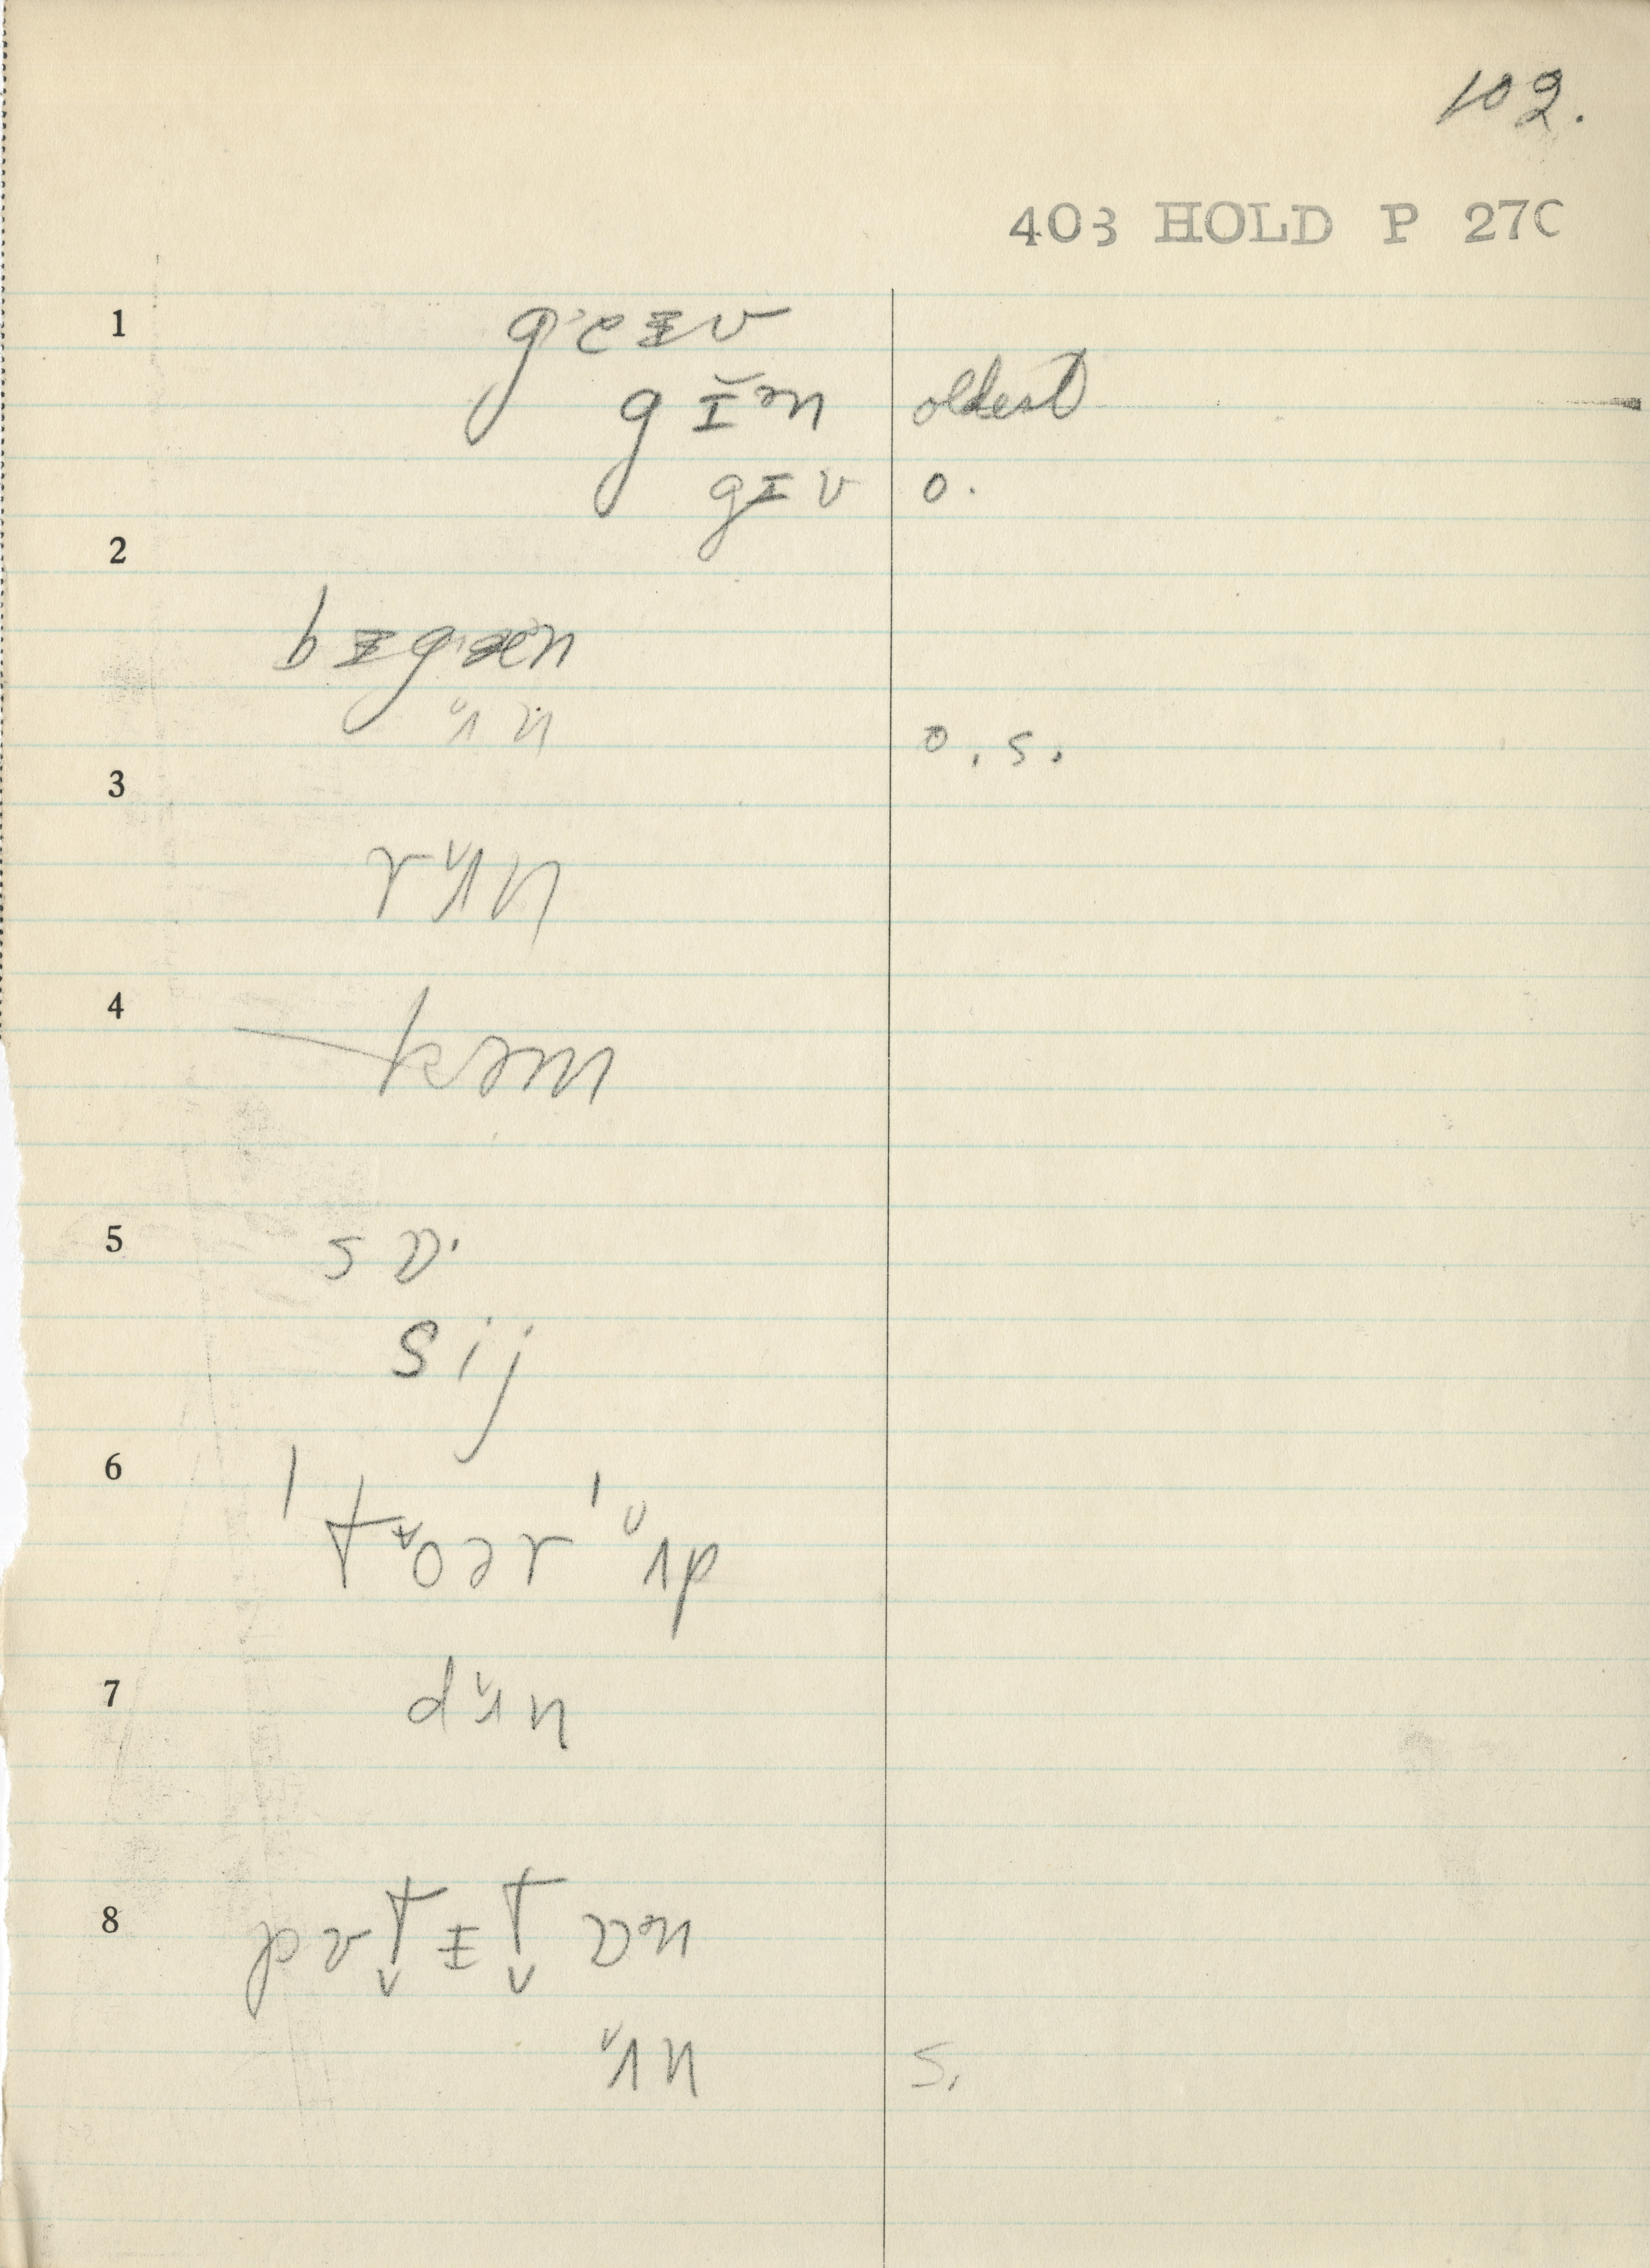 102.
403 HOLD P 27C
1 g'eɪv
gɪ̆ᵊn oldest
gɪv o.
2
bɪg'æn
ʌ̆n o. s.
3
rʌ̆n
4
kəm
5 sɒ'
sij
6
ˈtʊ̆oərˈʌ̆p
7 dʌ̆n
8 pʊt̬ɪt̬ ɒᵊn
ʌ̆n s.